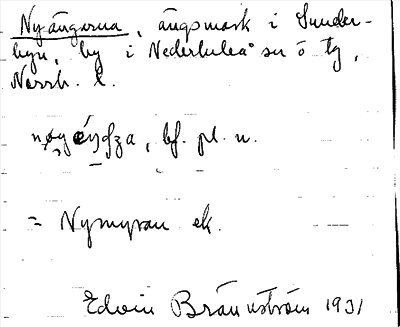 Nyängarna, ängsmark i Sunder-
byn, by i Nederluleå sn ö tg,
Norrb. l.
bf. pl. n.
= Nymyran ek.
Edvin Brännström 1931